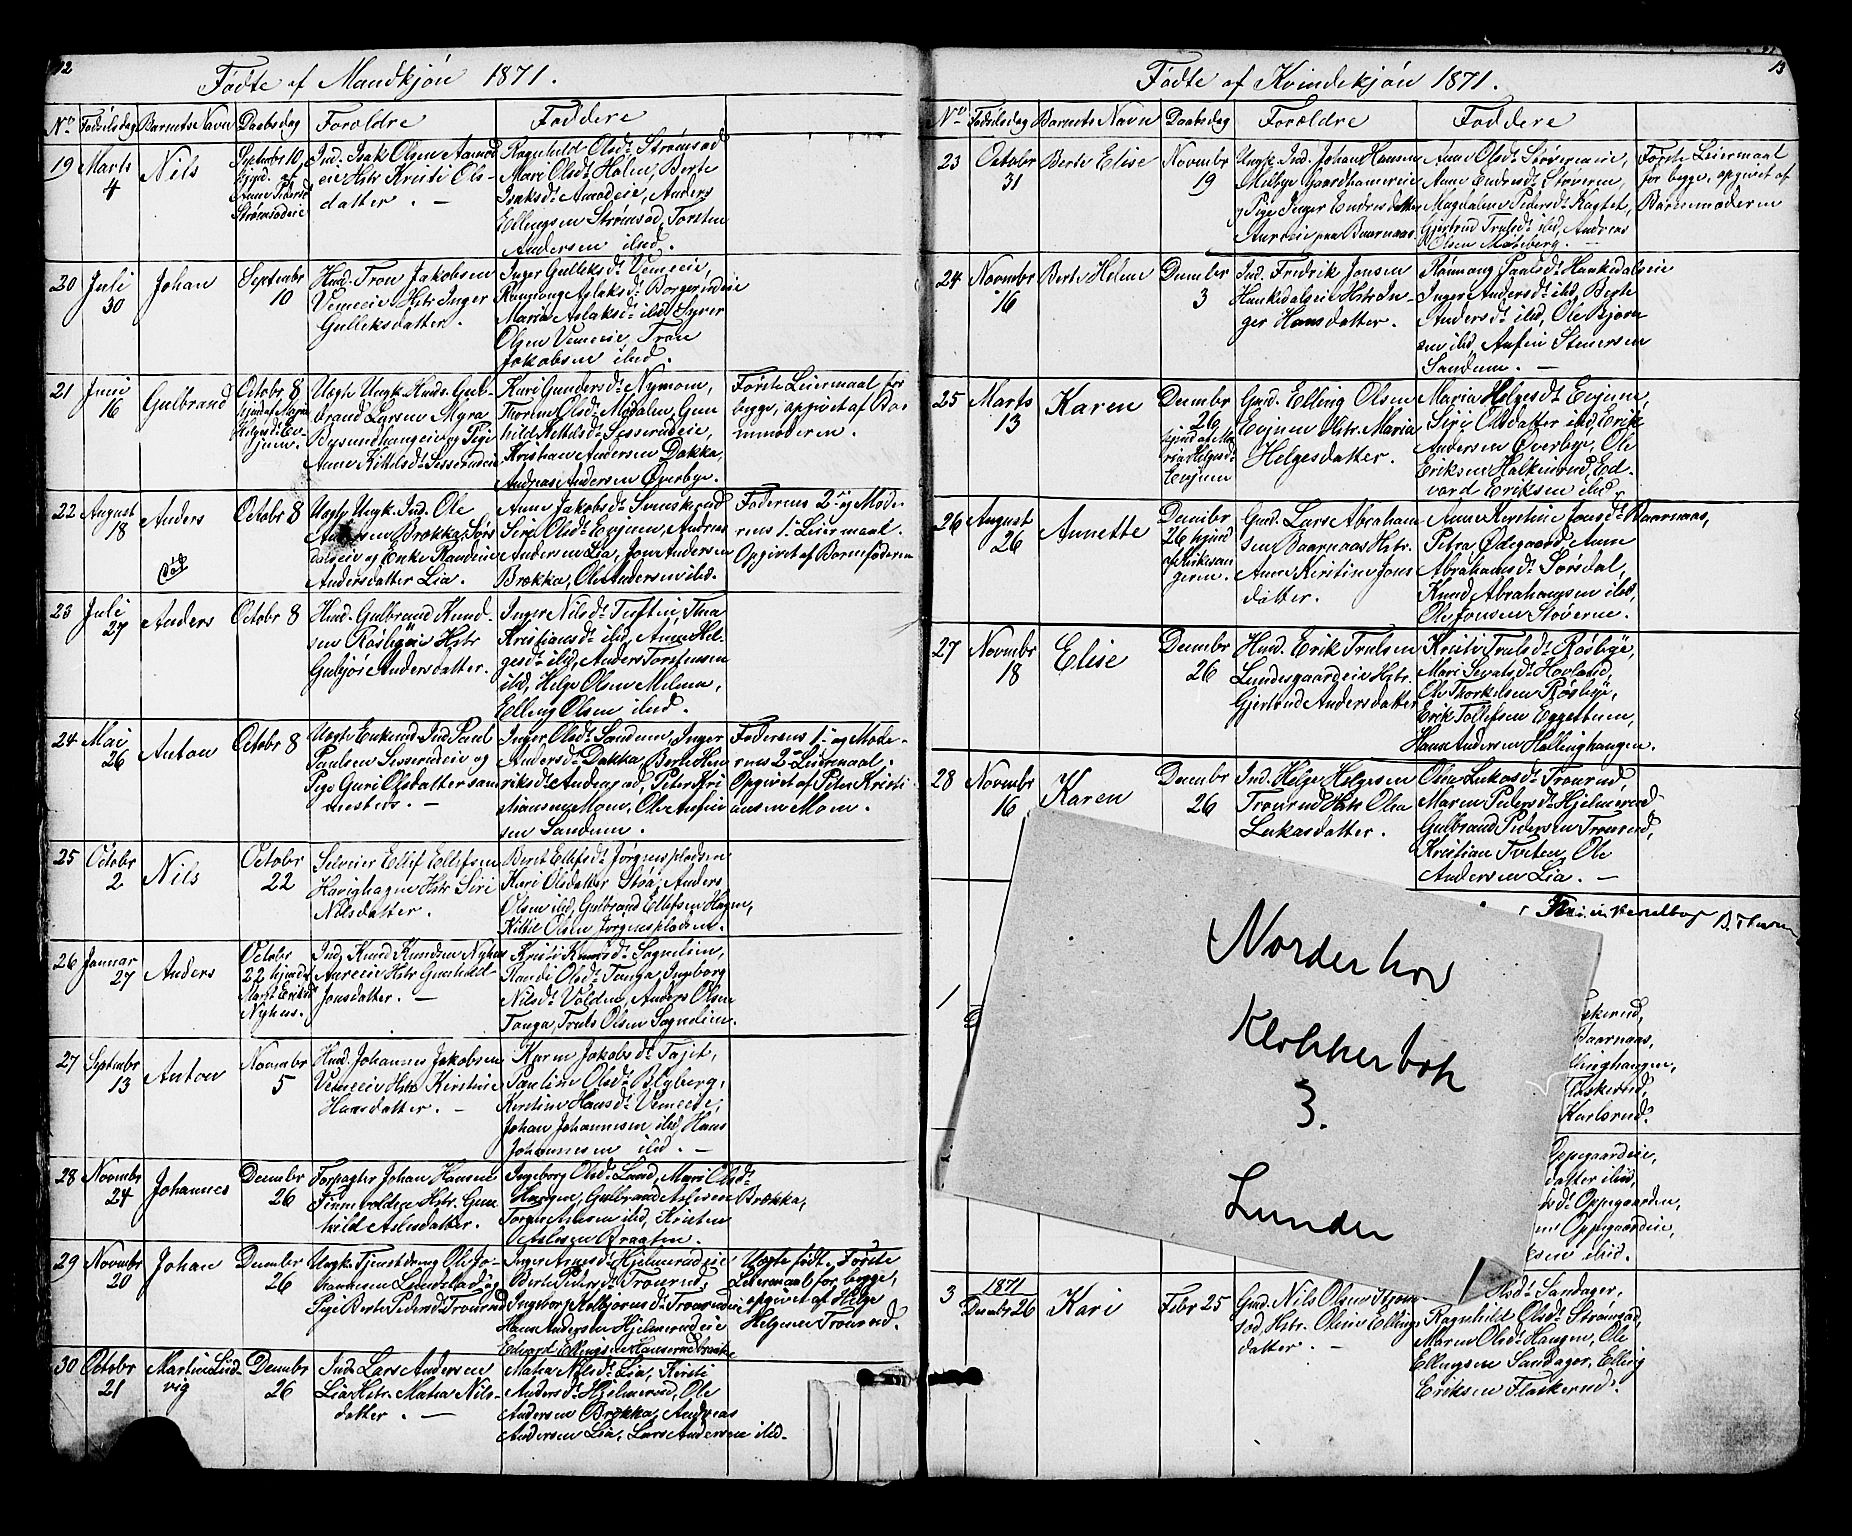 12
Fødte af Mandkjøn 1871.
No Fødselsdag Barnets Navn Daabsdag Forældre Faddere
19 Marts 4 Nils Septembr 10, hjmd. af Anne Pedersd. Strømsodeie
Ind. Isak Olsen Aamod
eie Hstr Kristi Ols-
datter. —
Ragnhild Olsdt Strømsod
Mari Olsdt Holen, Berte
Isaksdt Amodeie, Anders
Ellingsen Strømsod, Torsten
Andersen ibid.
20 Juli 30 Johan Septembr 10
Husd. Tron Jakobsen
Vemeeie Hstr Inger
Gulleksdatter.
Inger Gulleksdt Vemeeie,
Ranmong Aslaksdt Borgerudeie
Maria Aslaksdt ibid, Syver
Olsen Vemeeie, Tron
Jakobsen ibid.
21 Juni 16 Gulbrand Octobr 8 hjmd af Maria Helgesdt Evjuen.
Uægte Ungk. Husd. Gul-
brand Larsen Myra
Bysundhangeie og Pige
Anne Kittelsdt Sesserudeie
Kari Gundersdt Nymoen,
Thorine Olsdt Modalen, Gun
hild Kettilsdt Sesserudeie,
Kristian Andersen Dakka,
Andreas Andersen Øverbye.
Første Leiermaal for
begge, opgivet af Bar
nmoderen.
22 August 18 Anders Octobr 8
død
Uægte Ungk. Ind. Ole
Andersen Brækka Sørs
dalseie og Enke Randine
Andersdatter Lia.
Anne Jakobsdt Semskerud
Siri Olsdt Evjuen, Andreas
Andersen Lia, Jon Andersen
Brækka, Ole Andersen ibid.
Faderens 2den og Mode
rens 1ste Leiermaal.
Opgivet af Barnefaderen
23 Juli 27 Anders Octobr 8
Husd. Gulbrand Knud-
sen Røsbyeie Hstr
Gubjør Andersdatter.
Inger Nilsdt Tuftin, Thea
Kristiansdt ibid, Anne Hel
gesdt ibid, Anders Torstensen
ibid, Helge Olsen Melum,
Elling Olsen ibid.
24 Mai 26 Anton Octobr 8
Uægte Enkemd Ind Paul
Paulsen Sesserudeie og
Pige Guri Olsdatter sam
mesteds. —
Inger Olsdt Sandum, Inger
Andersdt Dakka, Berte Hen
riksdt Andersrud, Peter Kri
stiansen Moen, Ole Anfin
sen Sandum.
Faderens 1ste og Mode-
rens 2den Leiermaal.
Opgivet af Peter Kristi
ansen Moen.
25 Octobr 2 Nils Octobr 22
Selveier Ellif Ellefsen
Havighagen Hstr Siri
Nilsdatter.
Berit Ellefsdt Jørgensplodsen
Kari Olsdatter Støa, Anders
Olsen ibid, Gulbrand Ellefsen Hagen,
Kittil Olsen Jørgensplodsen.
26 Januar 27 Anders Octobr 22 hjmds. Margt Eriksdt Nyhus.
Ind. Knud Knudsen Nyhus
Aureeie Hstr Gunhild
Jonsdatter. —
Kristi Knudsdt Sognelien,
Randi Olsdt Tanga, Ingeborg
Nilsdt Volden, Anders Olsen
Tanga, Truls Olsen Sognelien.
27 Septembr 13 Anton Novembr 5
Husd. Johannes Jakobsen
Vemeeie Hstr Kirstine
Hansdatter. —
Karen Jakobsdt Tajet,
Pauline Olsdt Blyberg,
Kirstine Hansdt Vemeeie,
Johan Johannesen ibid, Hans
Johannesen ibid. —
28 Novembr 24 Johannes Decembr 26
Forpagter Johan Hansen
Finnevolden Hstr. Gun
hild Aslesdatter.
Ingeborg Olsdt Lund, Mari Olsdt
Haugen, Gulbrand Aslesen Brækka,
Torger Amesen ibid, Kristen
Aslesen Braaten.
29 Novembr 20 Johan Decembr 26
Ungk. Tjenstdreng Ole Jo-
hannesen Lundstad og
Pige Berte Pedersdt Tronrud
Inger Arnesdt Hjelmerudeie
Berte Pedersdt Tronrud,
Ingeborg Kolbjørnsdt Tronrudeie
Hans Andersen Hjelmerudeie
Edvard Ellingsen Hanserudbraaten
Uægte født. Første
Leiermaal for begge,
opgivet af Helge
Helgesen Tronrud.
30 Octobr 21 Martin Ludvig Decembr 26
Ind. Lars Andersen
Lia Hstr. Matea Nils-
datter. —
Matea Nilsdt Lia, Kirsti
Andersdt Hjelmerud, Ole
Andersen Brækka, Andreas
Andersen Lia, Lars Andersen ibid.
13
Fødte af Kvindekjøn 1871.
No Fødselsdag Barnets Navn Daabsdag Forældre Faddere
23 Octobr 31 Berte Elise Novembr 19
Ungk. Ind. Johan Hansen
Milbye Gaardhammereie
og Pige Inger Endresdatter
Aureeie paa Baarnaas
Anne Olsdt Størerneeie,
Anne Endresdt Støveren,
Magdalene Pedersdt Ragtet,
Gjertrud Trulsdt ibid, Andreas
Olsen Moteberg. —
Første Leiermaal
for begge, opgivet af
Barnmoderen
24 Novembr 16 Berte Helene Decembr 3
Ind. Fredrik Jonsen
Haukedalseie Hstr In-
ger Hansdatter.
Ranmong Paulsdt Haukedalseie
Inger Andersdt ibid, Berte
Andersdt ibid, Ole Bjørn
sen ibid, Anfin Stenersen
Sandum. —
25 Marts 13 Karen Decembr 26 hjmd af Maria Helgesd. Evjuen
Gmd. Elling Olsen
Evjuen Hstr. Maria
Helgesdatter.
Maria Helgesdt Evjuen,
Siri Olsdatter ibid, Erik
Andersen Øverbye, Ole
Eriksen Halkinrud, Ed-
vard Eriksen ibid.
26 August 26 Annette Decembr 26 hjmd af Kirkesangeren.
Gmd. Lars Abraham
sen Baarnaas Hstr.
Anne Kirstine Jons
datter.
Anne Kirstine Jonsdt Baarnaas,
Petra Ødegaard, Anne
Abrahamsdt Sørsdal,
Knud Abrahamsen ibid,
Ole Jonsen Støveren.
27 Novembr 18 Elise Decembr 26
Husd. Erik Trulsen
Lundesgaardeie Hstr.
Gjertrud Andersdatter
Kristi Trulsdt Røsbye,
Mari Sevatsdt Hovland,
Ole Thorkelsen Røsbye,
Erik Tollefsen Eggettuen,
Hans Andersen Hollinghaugen.
28 Novembr 16 Karen Decembr 26
Ind. Helge Helgesen
Tronrud Hstr. Olea
Lukasdatter.
Olea Lukasdt Tronrud,
Maren Pedersdt Hjelmerud
Gulbrand Pedersen Tronrud,
Kristian Tveten, Ole
Andersen Lia. —
1
skerud,
Baarnaas,
llinghaugen,
Flaskerud,
Karlsrud.
Oppegaardeie,
datter ibid,
dt Oppegaarden,
Oppegaardeie,
sen ibid.
Norderhov
Klokkerbok
3.
Lunder
3 1871 Decembr 26 Kari Febr 25
Gmd. Nils Olsen Strøm
sod Hstr. Oline Ellings
datter. —
Olsdt Sandager,
Ragnhild Olsdt Strømsod,
Maren Olsdt Haugen, Ole
Ellingsen Sandager, Elling
Eriksen Flaskerud.